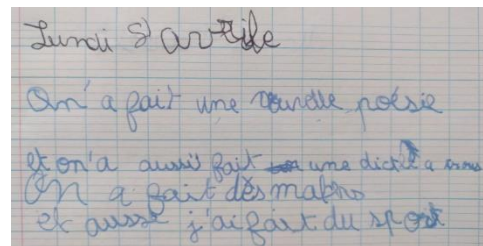 Lundi 8 avrile
On' a fait une nouvelle poésie
et on'a aussi fait une dictée a
On a fait dès maths
et aussi j'ai fait du sport